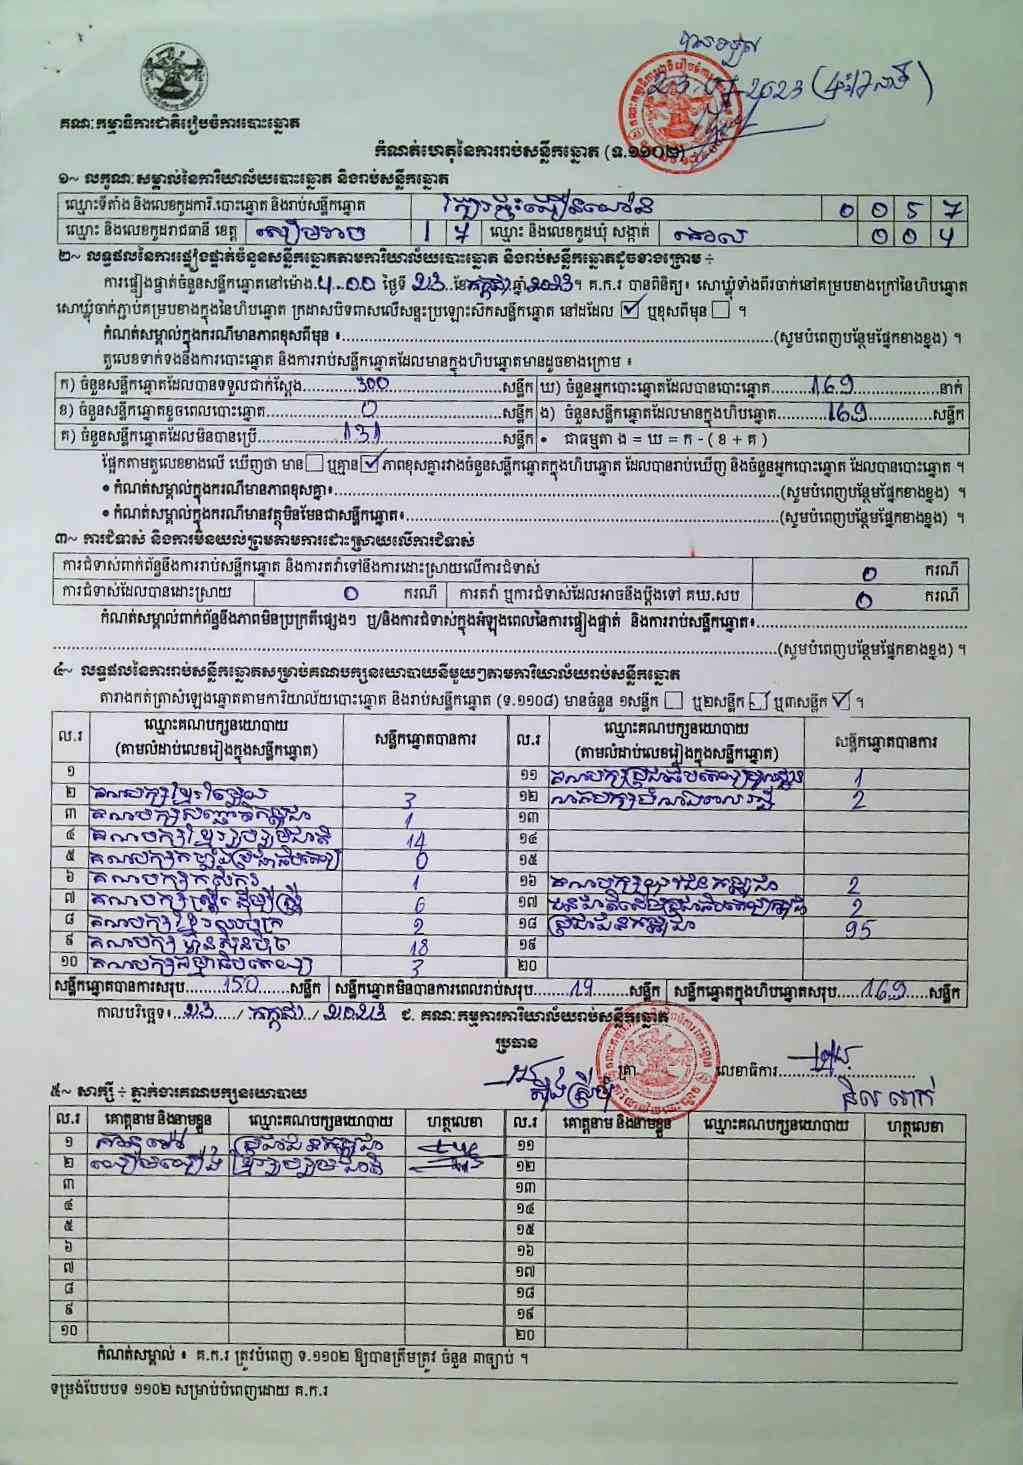 បានទទួល
23-07-2023 (
គណៈកម្មាធិការជាតិរៀបចំការបោះឆ្នោត
កំណត់ហេតុនៃការរាប់សន្លឹកឆ្នោត (ទ.១១០២)
១~ លក្ខណៈសម្គាល់នៃការិយាល័យបោះឆ្នោត និងរាប់សន្លឹកឆ្នោត
ឈ្មោះទីតាំង និងលេខកូដការិ.បោះឆ្នោត និងរាប់សន្លឹកឆ្នោត 0 0 5 7
ឈ្មោះ និងលេខកូដរាជធានី ខេត្ត សៀមរាប 1 7 ឈ្មោះ និងលេខកូដឃុំ សង្កាត់ 0 0 4
២~ លទ្ធផលនៃការផ្ទៀងផ្ទាត់ចំនួនសន្លឹកឆ្នោតតាមការិយាល័យបោះឆ្នោត និងរាប់សន្លឹកឆ្នោតដូចខាងក្រោម ÷
ការផ្ទៀងផ្ទាត់ចំនួនសន្លឹកឆ្នោតនៅម៉ោង.4.00 ថ្ងៃទី 23..ខែកក្កដាឆ្នាំ2023។ គ.ក.រ បានពិនិត្យ៖ សោឃ្លុំទាំងពីរចាក់នៅគម្របខាងក្រៅនៃហិបឆ្នោត
សោឃ្លុំចាក់ភ្ជាប់គម្របខាងក្នុងនៃហិបឆ្នោត ក្រដាសបិទពាសលើសន្ទះប្រឡោះសិកសន្លឹកឆ្នោត នៅដដែល ☑ ឬខុសពីមុន ☐ ។
កំណត់សម្គាល់ក្នុងករណីមានភាពខុសពីមុន ៖..........(សូមបំពេញបន្ថែមផ្នែកខាងខ្នង) ។
តួលេខទាក់ទងនឹងការបោះឆ្នោត និងការរាប់សន្លឹកឆ្នោតដែលមានក្នុងហិបឆ្នោតមានដូចខាងក្រោម ៖
ក) ចំនួនសន្លឹកឆ្នោតដែលបានទទួលជាក់ស្តែង.....300.....សន្លឹក ឃ) ចំនួនអ្នកបោះឆ្នោតដែលបានបោះឆ្នោត.....169.....នាក់
ខ) ចំនួនសន្លឹកឆ្នោតខូចពេលបោះឆ្នោត.....0.....សន្លឹក ង) ចំនួនសន្លឹកឆ្នោតដែលមានក្នុងហិបឆ្នោត.....169.....សន្លឹក
គ) ចំនួនសន្លឹកឆ្នោតដែលមិនបានប្រើ.....131.....សន្លឹក • ជាធម្មតា ង = ឃ = ក - ( ខ + គ )
ផ្អែកតាមតួលេខខាងលើ ឃើញថា មាន☐ ឬគ្មាន☑ ភាពខុសគ្នារវាងចំនួនសន្លឹកឆ្នោតក្នុងហិបឆ្នោត ដែលបានរាប់ឃើញ និងចំនួនអ្នកបោះឆ្នោត ដែលបានបោះឆ្នោត ។
• កំណត់សម្គាល់ក្នុងករណីមានភាពខុសគ្នា៖..........(សូមបំពេញបន្ថែមផ្នែកខាងខ្នង) ។
• កំណត់សម្គាល់ក្នុងករណីមានវត្ថុមិនមែនជាសន្លឹកឆ្នោត៖..........(សូមបំពេញបន្ថែមផ្នែកខាងខ្នង) ។
៣~ ការជំទាស់ និងការមិនយល់ព្រមតាមការដោះស្រាយលើការជំទាស់
ការជំទាស់ពាក់ព័ន្ធនឹងការរាប់សន្លឹកឆ្នោត និងការតវ៉ាទៅនឹងការដោះស្រាយលើការជំទាស់ 0 ករណី
ការជំទាស់ដែលបានដោះស្រាយ 0 ករណី ការតវ៉ា ឬការជំទាស់ដែលអាចនឹងប្តឹងទៅ គឃ.សប 0 ករណី
កំណត់សម្គាល់ពាក់ព័ន្ធនឹងភាពមិនប្រក្រតីផ្សេងៗ ឬ/និងការជំទាស់ក្នុងអំឡុងពេលនៃការផ្ទៀងផ្ទាត់ និងការរាប់សន្លឹកឆ្នោត៖..........
..........(សូមបំពេញបន្ថែមផ្នែកខាងខ្នង) ។
៤~ លទ្ធផលនៃការរាប់សន្លឹកឆ្នោតសម្រាប់គណបក្សនយោបាយនីមួយៗតាមការិយាល័យរាប់សន្លឹកឆ្នោត
តារាងកត់ត្រាសំឡេងឆ្នោតតាមការិយាល័យបោះឆ្នោត និងរាប់សន្លឹកឆ្នោត (ទ.១១០៨) មានចំនួន ១សន្លឹក ☐ ឬ២សន្លឹក ☐ ឬ៣សន្លឹក ☑ ។
ល.រ ឈ្មោះគណបក្សនយោបាយ (តាមលំដាប់លេខរៀងក្នុងសន្លឹកឆ្នោត) សន្លឹកឆ្នោតបានការ ល.រ ឈ្មោះគណបក្សនយោបាយ (តាមលំដាប់លេខរៀងក្នុងសន្លឹកឆ្នោត) សន្លឹកឆ្នោតបានការ
១ ១១ 1
២ 3 ១២ 2
៣ 1 ១៣
៤ គណបក្សខ្មែររួបរួមជាតិ 14 ១៤
៥ គណបក្សកម្លាំងប្រជាធិបតេយ្យ 0 ១៥
៦ គណបក្សកសិករ 1 ១៦ គណបក្សយុវជនកម្ពុជា 2
៧ គណបក្សស្ត្រីដើម្បីស្ត្រី 6 ១៧ 2
៨ 2 ១៨ ប្រជាជនកម្ពុជា 95
៩ គណបក្សហ្វ៊ុនស៊ិនប៉ិច 18 ១៩
១០ គណបក្សធម្មាធិបតេយ្យ 3 ២០
សន្លឹកឆ្នោតបានការសរុប.....150.....សន្លឹក សន្លឹកឆ្នោតមិនបានការពេលរាប់សរុប.....19.....សន្លឹក សន្លឹកឆ្នោតក្នុងហិបឆ្នោតសរុប.....169.....សន្លឹក
កាលបរិច្ឆេទ៖..23../ កក្កដា / 2023 ជ. គណៈកម្មការការិយាល័យរាប់សន្លឹកឆ្នោត
ប្រធាន
ត្រា លេខាធិការ..........
៥~ សាក្សី ÷ ភ្នាក់ងារគណបក្សនយោបាយ
ល.រ គោត្តនាម និងនាមខ្លួន ឈ្មោះគណបក្សនយោបាយ ហត្ថលេខា ល.រ គោត្តនាម និងនាមខ្លួន ឈ្មោះគណបក្សនយោបាយ ហត្ថលេខា
១ ប្រជាជនកម្ពុជា ១១
២ ខ្មែររួបរួមជាតិ ១២
៣ ១៣
៤ ១៤
៥ ១៥
៦ ១៦
៧ ១៧
៨ ១៨
៩ ១៩
១០ ២០
កំណត់សម្គាល់ ៖ គ.ក.រ ត្រូវបំពេញ ទ.១១០២ ឱ្យបានត្រឹមត្រូវ ចំនួន ៣ច្បាប់ ។
ទម្រង់បែបបទ ១១០២ សម្រាប់បំពេញដោយ គ.ក.រ